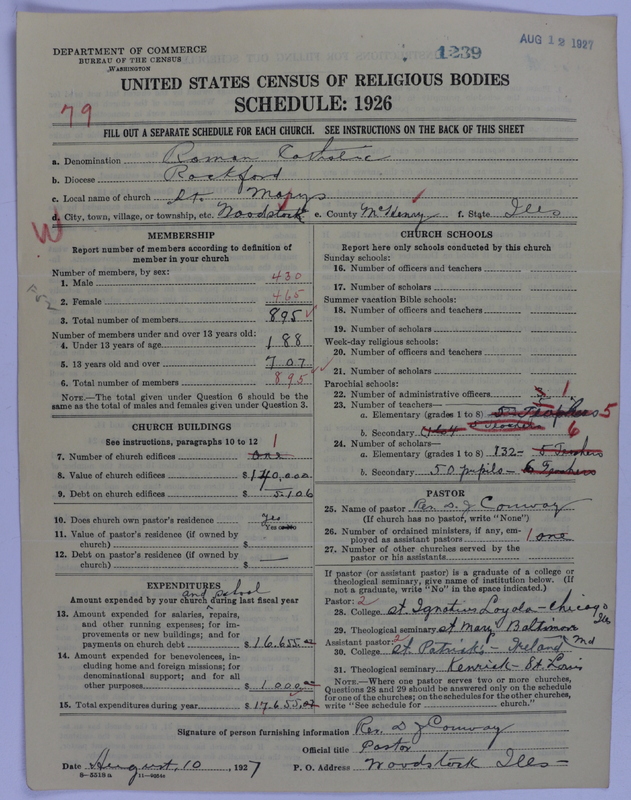 DEPARTMENT OF COMMERCE
BUREAU OF THE CENSUS
WASHINGTON
1239
AUG 12 1927
UNITED STATES CENSUS OF RELIGIOUS BODIES
SCHEDULE: 1926
79
FILL OUT A SEPARATE SCHEDULE FOR EACH CHURCH. SEE INSTRUCTIONS ON THE BACK OF THIS SHEET
a. Denomination Roman Catholic
b. Diocese Rockford
c. Local name of church St. Marys
d. City, town, village, or township, etc. Woodstock e. County McHenry f. State Ills
W
MEMBERSHIP
Report number of members according to definition of
member in your church
Number of members, by sex:
1. Male 430
2. Female 465
3. Total number of members 895
Number of members under and over 13 years old:
4. Under 13 years of age 188
5. 13 years old and over 707
6. Total number of members 895
NOTE.—The total given under Question 6 should be the
same as the total of males and females given under Question 3.
CHURCH BUILDINGS
See instructions, paragraphs 10 to 12
7. Number of church edifices one 1
8. Value of church edifices $140,000
9. Debt on church edifices $5106
10. Does church own pastor's residence yes
Yes or No
11. Value of pastor's residence (if owned by
church) $
12. Debt on pastor's residence (if owned by
church) $ —
EXPENDITURES
and school
Amount expended by your church during last fiscal year
13. Amount expended for salaries, repairs,
and other running expenses; for im-
provements or new buildings; and for
payments on church debt $16.655.00
14. Amount expended for benevolences, in-
cluding home and foreign missions; for
denominational support; and for all
other purposes $1.000.00
15. Total expenditures during year $17.655.00
CHURCH SCHOOLS
Report here only schools conducted by this church
Sunday schools:
16. Number of officers and teachers
17. Number of scholars
Summer vacation Bible schools:
18. Number of officers and teachers
19. Number of scholars
Week-day religious schools:
20. Number of officers and teachers
21. Number of scholars
Parochial schools:
22. Number of administrative officers 1.
23. Number of teachers—
a. Elementary (grades 1 to 8) 5
b. Secondary 6
24. Number of scholars—
a. Elementary (grades 1 to 8) 132- 5 Teachers
b. Secondary 50 pupils- 6 Teachers
PASTOR
25. Name of pastor Rev. D. J Conway
(If church has no pastor, write "None")
26. Number of ordained ministers, if any, em-
ployed as assistant pastors 1 one
27. Number of other churches served by the
pastor or his assistants
If pastor (or assistant pastor) is a graduate of a college or
theological seminary, give name of institution below. (If
not a graduate, write "No" in the space indicated.)
Pastor: 2
28. College St. Ignatius Loyola- Chicago Ills
29. Theological seminary St Mary Baltimore Md
Assistant pastor: 2
30. College St. Patrick's- Ireland
31. Theological seminary Kenrick- St. Louis
NOTE.—Where one pastor serves two or more churches,
Questions 28 and 29 should be answered only on the schedule
for one of the churches; on the schedules for the other churches,
write "See schedule for church."
Signature of person furnishing information Rev. D J Conway
Official title Pastor
Date August, 10, 1927 P. O. Address Woodstock Ills-
8—5518a 11—9284a